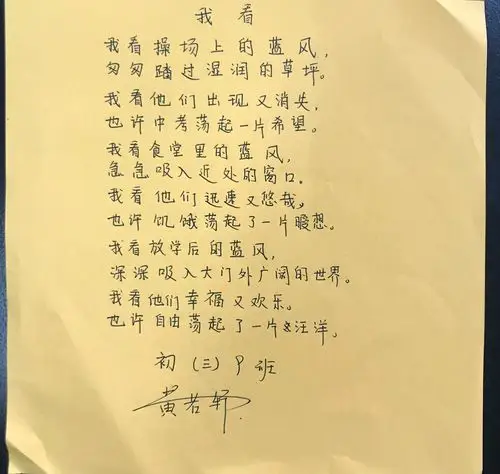 我看
我看操场上的蓝风，
匆匆踏过湿润的草坪。
我看他们出现又消失，
也许中考荡起一片希望。
我看食堂里的蓝风，
急急吸入近处的窗口。
我看他们迅速又悠哉，
也许饥饿荡起了一片暖想。
我看放学后的蓝风，
深深吸入大门外广阔的世界。
我看他们幸福又欢乐。
也许自由荡起了一片汪洋。
初（三）9班
黄若轩